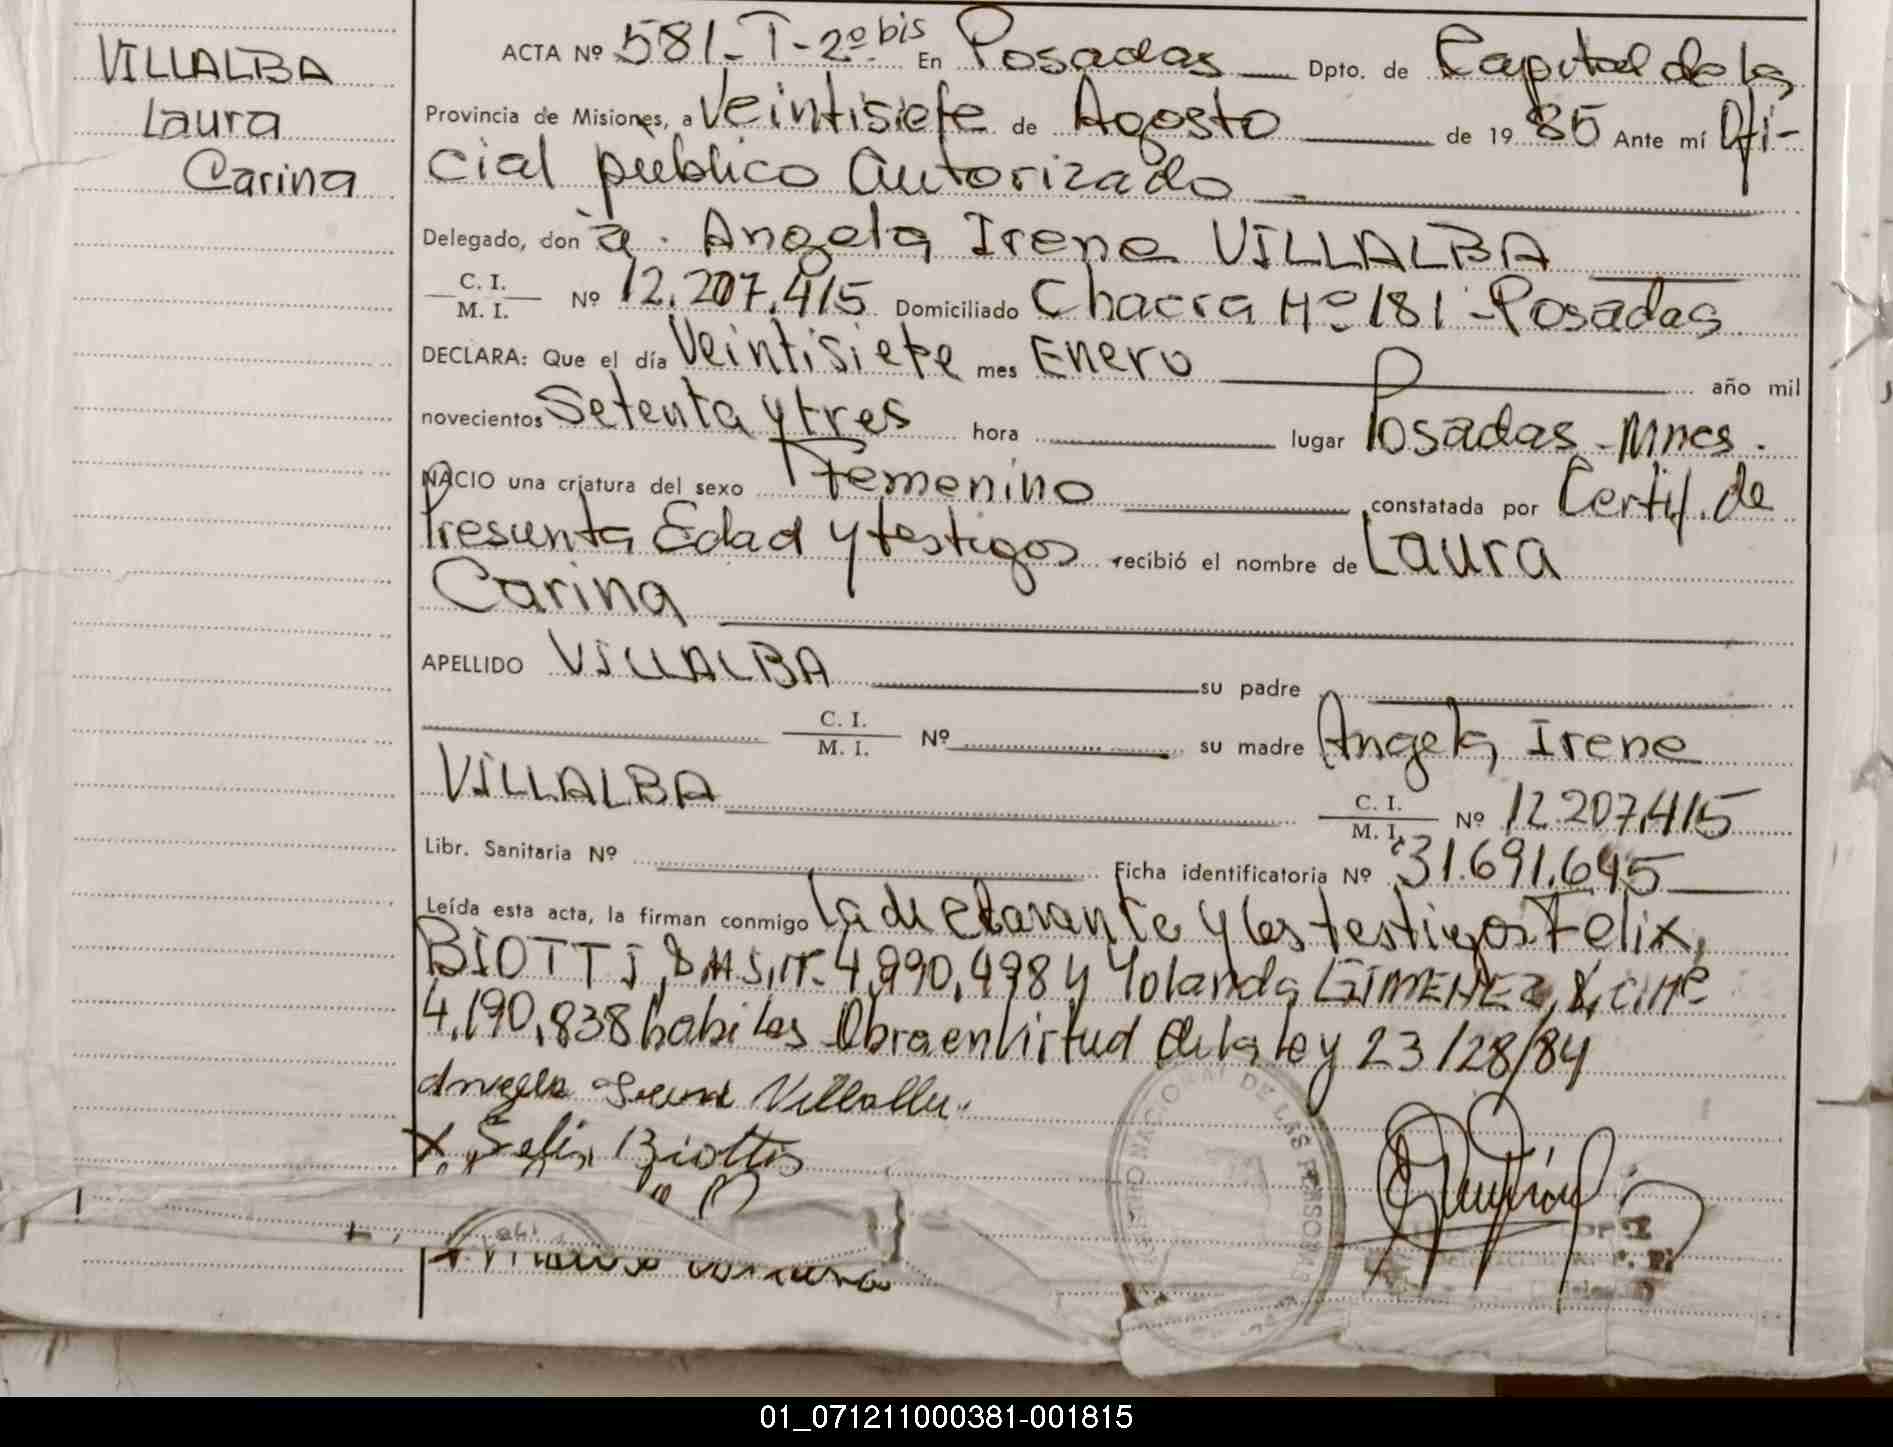 VILLALBA
Laura
Carina
ACTA Nº 581-T-2º bis En Posadas Dpto. de Capital de la
Provincia de Misiones, a Veintisiete de Agosto de 19 85 Ante mí Ofi-
cial público Autorizado
Delegado, don a. Angela Irene VILLALBA
C. I.
M. I. Nº 12.207.415 Domiciliado Chacra Nº 181 - Posadas
DECLARA: Que el día Veintisiete mes Enero año mil
novecientos Setenta y tres hora lugar Posadas - Mnes.
NACIO una criatura del sexo Femenino constatada por Certif. de
Presunta Edad y testigos recibió el nombre de Laura
Carina
APELLIDO VILLALBA su padre
C. I.
M. I. Nº su madre Angela Irene
VILLALBA C. I.
M. I. Nº 12.207.415
Libr. Sanitaria Nº Ficha identificatoria Nº 31.691.645
Leída esta acta, la firman conmigo la declarante y los testigos Felix
BIOTTI 4.990.498 y Yolanda GIMENEZ
4.190.838 habiles Obra en Virtud de la ley 23/28/84
Villalba
X Biotti
REGISTRO NACIONAL DE LAS PERSONAS
01_071211000381-001815